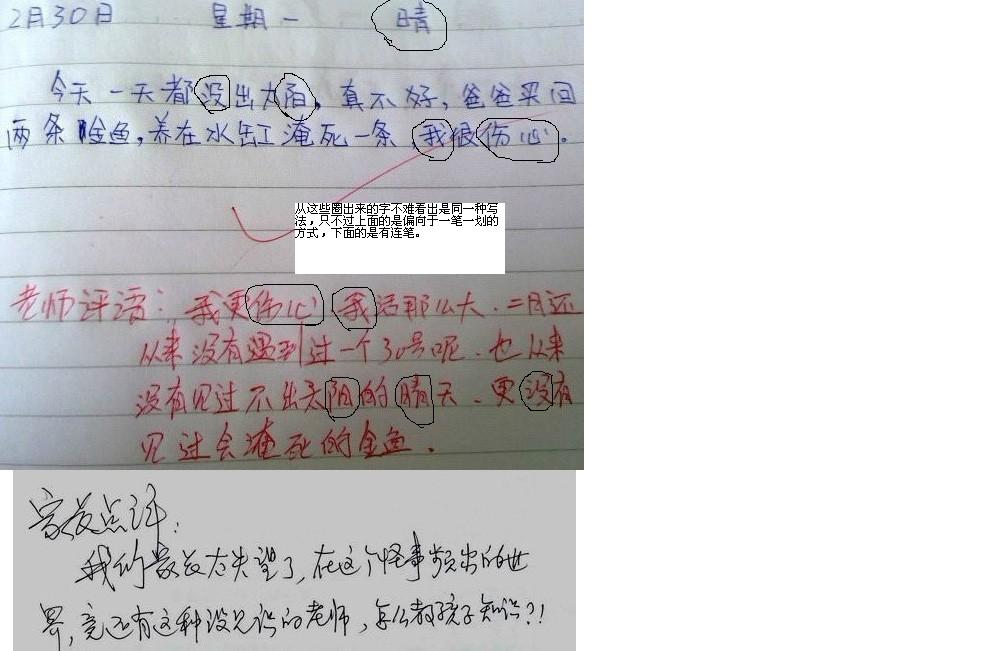 2月30日 星期一 晴
今天一天都没出太阳，真不好，爸爸买回
两条金鱼，养在水缸淹死一条，我很伤心。
从这些圈出来的字不难看出是同一种写
法，只不过上面的是偏向于一笔一划的
方式，下面的是有连笔。
老师评语：我更伤心，我活那么大．二月还
从来没有遇到过一个30号呢．也从来
没有见过不出太阳的晴天．更没有
见过会淹死的金鱼．
家长点评：
我们家长太失望了，在这个怪事频出的世
界，竟还有这种没见识的老师，怎么教孩子知识？！